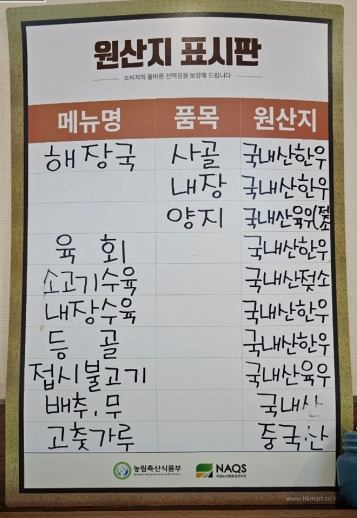 원산지 표시판
소비자의 올바른 선택권을 보장해 드립니다
메뉴명 품목 원산지
해장국 사골 국내산한우
내장 국내산한우
양지 국내산육우(젖소
육 회 국내산한우
소고기수육 국내산젖소
내장수육 국내산한우
등 골 국내산한우
접시불고기 국내산육우
배추, 무 국내산
고춧가루 중국산
농림축산식품부 NAQS
www.hkmart.co.k